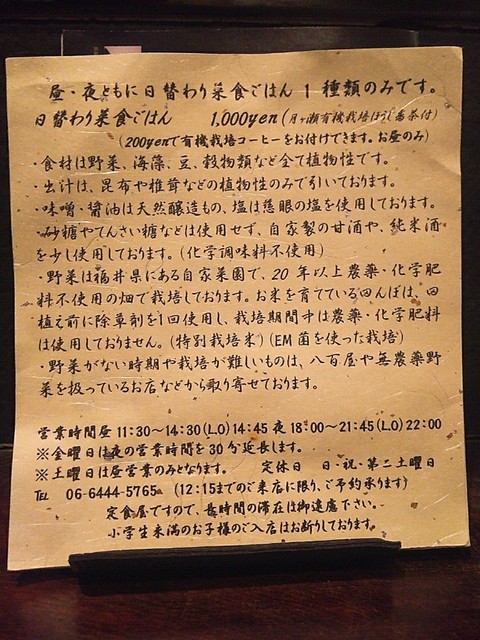 昼・夜ともに日替わり菜食ごはん１種類のみです。
日替わり菜食ごはん 1,000yen(月ヶ瀬有機栽培ほうじ番茶付)
(200yenで有機栽培コーヒーをお付けできます。お昼のみ)
・食材は野菜、海藻、豆、穀物類など全て植物性です。
・出汁は、昆布や椎茸などの植物性のみで引いております。
・味噌・醤油は天然醸造もの、塩は慈眼の塩を使用しております。
・砂糖やてんさい糖などは使用せず、自家製の甘酒や、純米酒
を少し使用しております。(化学調味料不使用)
・野菜は福井県にある自家菜園で、20年以上農薬・化学肥
料不使用の畑で栽培しております。お米を育てている田んぼは、田
植え前に除草剤を1回使用し、栽培期間中は農薬・化学肥料
は使用しておりません。(特別栽培米)(EM菌を使った栽培)
・野菜がない時期や栽培が難しいものは、八百屋や無農薬野
菜を扱っているお店などから取り寄せております。
営業時間昼11:30〜14:30(L.O)14:45 夜18:00〜21:45(L.O)22:00
※金曜日は夜の営業時間を30分延長します。
※土曜日は昼営業のみとなります。 定休日 日・祝・第二土曜日
TEL 06-6444-5765 (12:15までのご来店に限り、ご予約承ります)
定食屋ですので、長時間の滞在は御遠慮下さい。
小学生未満のお子様のご入店はお断りしております。